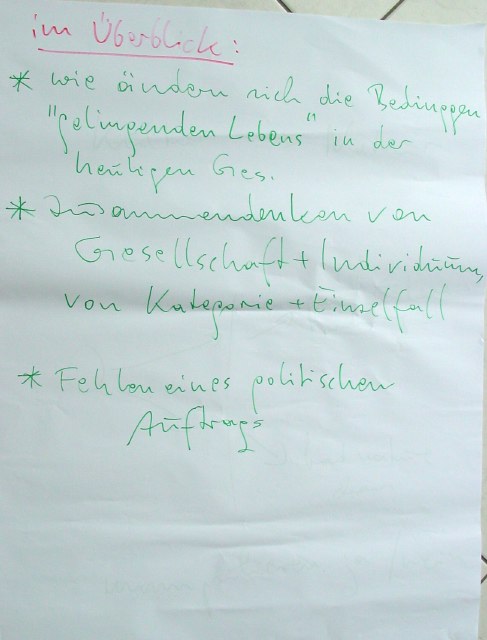 im Überblick:
* wie ändern sich die Bedinggen
"gelingenden Lebens" in der
heutigen Ges.
* Zusammendenken von
Gesellschaft + Individuum,
von Kategorie + Einzelfall
* Fehlen eines politischen
Auftrags